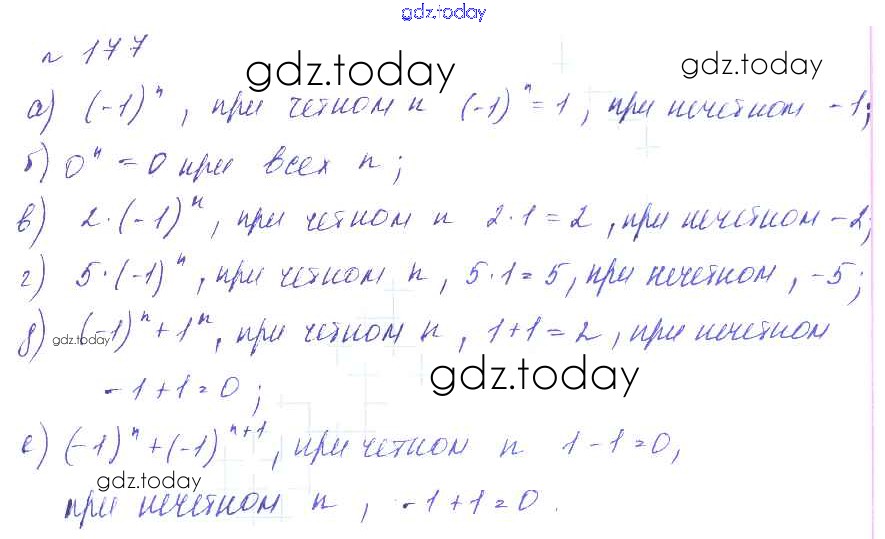 gdz.today
№ 177
gdz.today gdz.today
а) (-1)ⁿ, при четном n (-1)ⁿ = 1, при нечетном -1;
б) 0ⁿ = 0 при всех n;
в) 2·(-1)ⁿ, при четном n 2·1 = 2, при нечетном -2;
г) 5·(-1)ⁿ, при четном n, 5·1 = 5, при нечетном, -5;
д) (-1)ⁿ + 1ⁿ, при четном n, 1+1 = 2, при нечетном
gdz.today
-1+1=0;
gdz.today
е) (-1)ⁿ + (-1)ⁿ⁺¹, при четном n 1-1=0,
gdz.today
при нечетном n, -1+1=0.